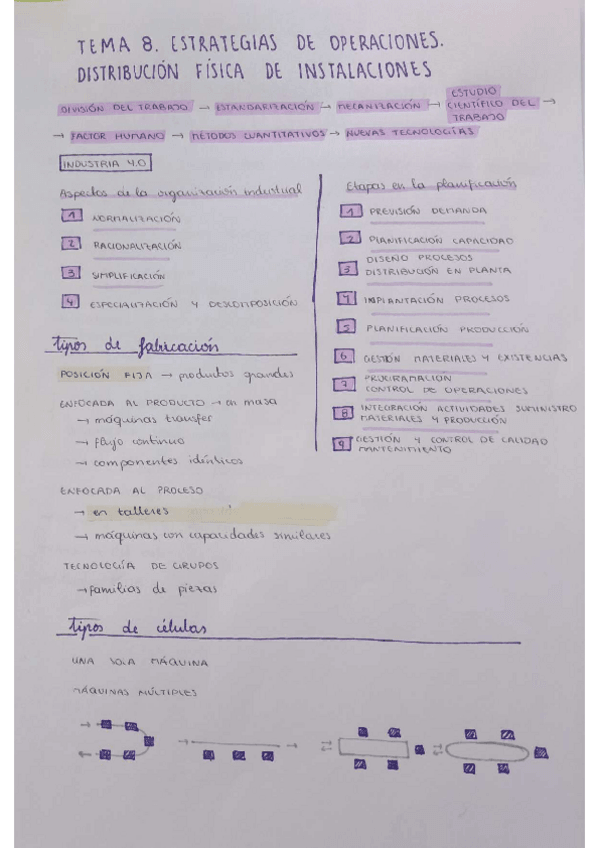 TEMA 8. ESTRATEGIAS DE OPERACIONES.
DISTRIBUCIÓN FÍSICA DE INSTALACIONES
DIVISIÓN DEL TRABAJO → ESTANDARIZACIÓN → MECANIZACIÓN → ESTUDIO CIENTÍFICO DEL TRABAJO →
→ FACTOR HUMANO → MÉTODOS CUANTITATIVOS → NUEVAS TECNOLOGÍAS
INDUSTRIA 4.0
Aspectos de la organización industrial
1 NORMALIZACIÓN
2 RACIONALIZACIÓN
3 SIMPLIFICACIÓN
4 ESPECIALIZACIÓN Y DESCOMPOSICIÓN
Etapas en la planificación
1 PREVISIÓN DEMANDA
2 PLANIFICACIÓN CAPACIDAD
3 DISEÑO PROCESOS
DISTRIBUCIÓN EN PLANTA
4 IMPLANTACIÓN PROCESOS
5 PLANIFICACIÓN PRODUCCIÓN
6 GESTIÓN MATERIALES Y EXISTENCIAS
7 PROGRAMACIÓN
CONTROL DE OPERACIONES
8 INTEGRACIÓN ACTIVIDADES SUMINISTRO
MATERIALES Y PRODUCCIÓN
9 GESTIÓN Y CONTROL DE CALIDAD
MANTENIMIENTO
tipos de fabricación
POSICIÓN FIJA → productos grandes
ENFOCADA AL PRODUCTO → en masa
→ máquinas transfer
→ flujo continuo
→ componentes idénticos
ENFOCADA AL PROCESO
→ en talleres
→ máquinas con capacidades similares
TECNOLOGÍA DE GRUPOS
→ familias de piezas
tipos de células
UNA SOLA MÁQUINA
MÁQUINAS MÚLTIPLES